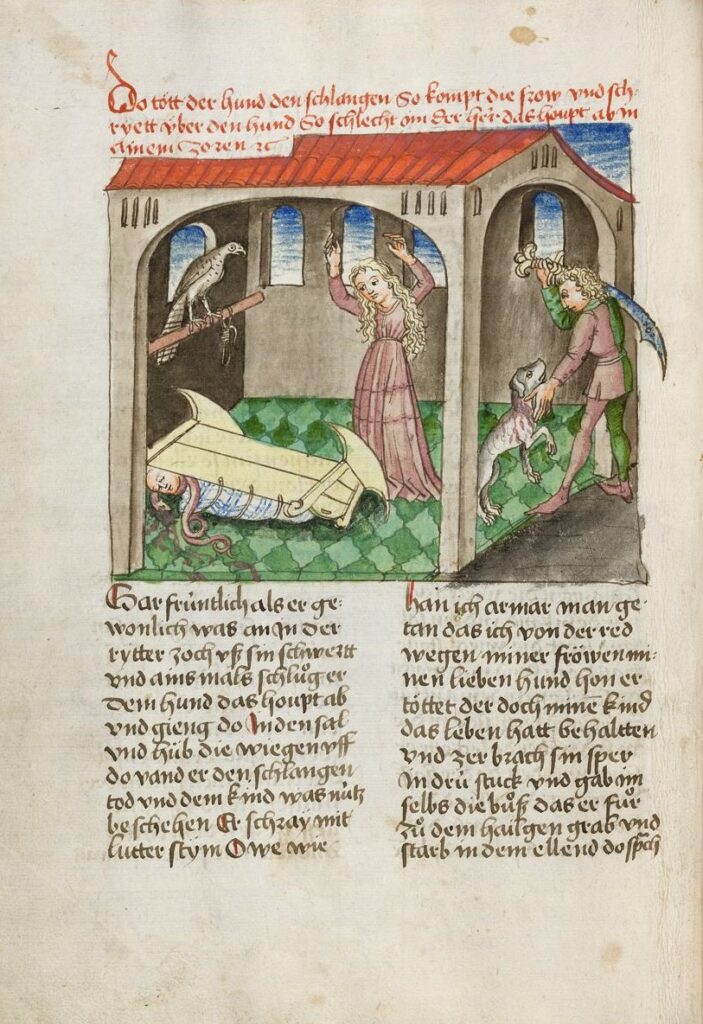 Do tött der hund den schlangen So kompt die frow vnd sch-
ryett vber den hund So schlecht im der her das houpt ab in
ainem zoren ꝛc
Gar früntlich als er ge-
wonlich was an In der
rytter zoch vß sin schwertt
vnd ains mals schlůg er
dem hund das houpt ab
vnd gieng do In den sal
vnd hůb die wiegen vff
do vand er den schlangen
tod vnd dem kind was nütz
beschehen Er schray mit
lutter stym O we wie
han ich armar man ge-
tan das ich von der red
wegen miner fröwen mi-
nen lieben hund hon er
töttet der doch minē kind
das leben hatt behaltten
vnd zer brach sin sper
In drü stuck vnd gab im
selbs die bůß das er für
zů dem hailgen grab vnd
starb in dem ellend do sprach